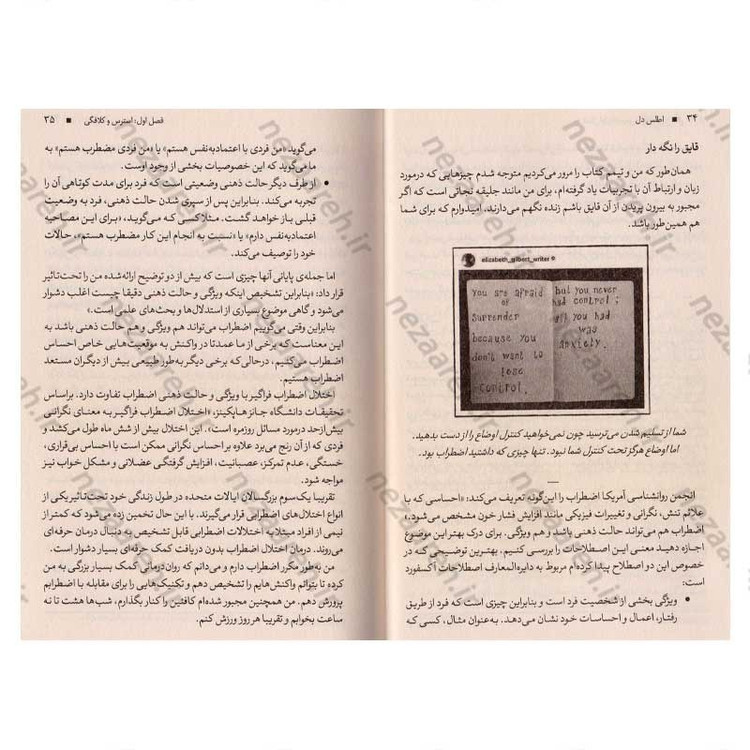 ۳۴ ■ اطلس دل
قایق را نگه دار
همان‌طور که من و تیمم کتاب را مرور می‌کردیم متوجه شدم چیزهایی که درمورد
زبان و ارتباط آن با تجربیات یاد گرفته‌ام، برای من مانند جلیقه نجاتی است که اگر
مجبور به بیرون پریدن از آن قایق باشم زنده نگهم می‌دارند. امیدوارم که برای شما
هم همین‌طور باشد.
elizabeth_gilbert_writer
you are afraid
of
surrender
because you
don't want to
lose
control.
but you never
had control;
all you had
was
anxiety.
شما از تسلیم شدن می‌ترسید چون نمی‌خواهید کنترل اوضاع را از دست بدهید.
اما اوضاع هرگز تحت کنترل شما نبود. تنها چیزی که داشتید اضطراب بود.
انجمن روانشناسی آمریکا اضطراب را این‌گونه تعریف می‌کند: «احساسی که با
علائم تنش، نگرانی و تغییرات فیزیکی مانند افزایش فشار خون مشخص می‌شود.»
اضطراب هم می‌تواند حالت ذهنی باشد و هم ویژگی. برای درک بهتر این موضوع،
اجازه دهید معنی این اصطلاحات را بررسی کنیم. بهترین توضیحی که در
خصوص این دو اصطلاح پیدا کرده‌ام مربوط به دایره‌المعارف اصطلاحات آکسفورد
است:
• ویژگی بخشی از شخصیت فرد است و بنابراین چیزی است که فرد از طریق
رفتار، اعمال و احساسات خود نشان می‌دهد. به‌عنوان مثال، کسی که
فصل اول: استرس و کلافگی ■ ۳۵
می‌گوید «من فردی با اعتمادبه‌نفس هستم» یا «من فردی مضطرب هستم» به
ما می‌گوید که این خصوصیات بخشی از وجود اوست.
• از طرف دیگر حالت ذهنی وضعیتی است که فرد برای مدت کوتاهی آن را
تجربه می‌کند. بنابراین پس از سپری شدن حالت ذهنی، فرد به وضعیت
قبلی باز خواهد گشت. مثلا کسی که می‌گوید، «برای این مصاحبه
اعتمادبه‌نفس دارم» یا «نسبت به انجام این کار مضطرب هستم»، حالات
خود را توصیف می‌کند.
اما جمله‌ی پایانی آنها چیزی است که بیش از دو توضیح ارائه‌شده من را تحت‌تاثیر
قرار داد: «بنابراین تشخیص اینکه ویژگی و حالت ذهنی دقیقا چیست اغلب دشوار
می‌شود و گاهی موضوع بسیاری از استدلال‌ها و بحث‌های علمی است.»
بنابراین وقتی می‌گوییم اضطراب می‌تواند هم ویژگی و هم حالت ذهنی باشد به
این معناست که برخی از ما عمدتا در واکنش به موقعیت‌هایی خاص احساس
اضطراب می‌کنیم، درحالی‌که برخی دیگر به‌طور طبیعی بیش از دیگران مستعد
اضطراب هستیم.
اختلال اضطراب فراگیر با ویژگی و حالت ذهنی اضطراب تفاوت دارد. براساس
تحقیقات دانشگاه جانز هاپکینز، «اختلال اضطراب فراگیر به معنای نگرانی
بیش‌ازحد درمورد مسائل روزمره است». این اختلال بیش از شش ماه طول می‌کشد و
فردی که از آن رنج می‌برد علاوه بر احساس نگرانی ممکن است با احساس بی‌قراری،
خستگی، عدم تمرکز، عصبانیت، افزایش گرفتگی عضلانی و مشکل خواب نیز
مواجه شود.
تقریبا یک سوم بزرگسالان ایالات متحده در طول زندگی خود تحت‌تاثیر یکی از
انواع اختلال‌های اضطرابی قرار می‌گیرند. با این حال تخمین زده می‌شود که کمتر از
نیمی از افراد مبتلا به اختلالات اضطرابی قابل تشخیص به دنبال درمان حرفه‌ای
می‌روند. درمان اختلال اضطراب بدون دریافت کمک حرفه‌ای بسیار دشوار است.
من به‌طور مکرر اضطراب دارم و می‌دانم که روان‌درمانی کمک بسیار بزرگی به من
کرده تا بتوانم واکنش‌هایم را تشخیص دهم و تکنیک‌هایی را برای مقابله با اضطرابم
پرورش دهم. من همچنین مجبور شده‌ام کافئین را کنار بگذارم، شب‌ها هشت تا نه
ساعت بخوابم و تقریبا هر روز ورزش کنم.
nezaareh.ir